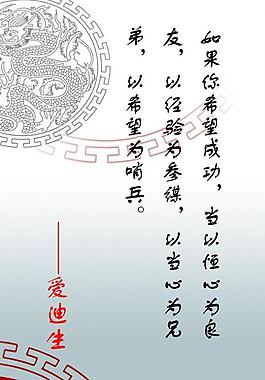 如果你希望成功，当以恒心为良
友，以经验为参谋，以当心为兄
弟，以希望为哨兵。
——爱迪生